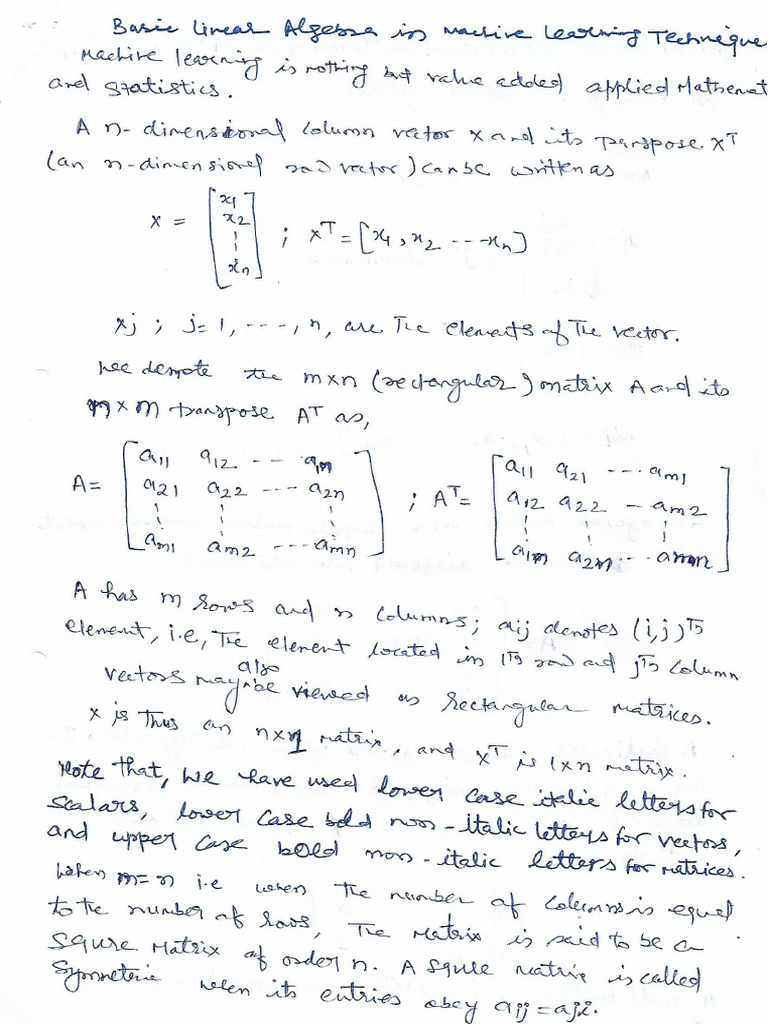 Basic Linear Algebra in Machine Learning Technique
Machine learning is nothing but value added applied Mathemat
and statistics.
A n-dimensional column vector x and its transpose xT
(an n-dimensional row vector) can be written as
x = [x1 x2 ¦ xn] ; xT = [x1, x2 ---xn]
xj ; j=1, ---, n, are The elements of The vector.
we denote the m×n (rectangular) matrix A and its
n×m transpose AT as,
A= [a11 a12 -- a1n ; AT= [a11 a21 --- am1
a21 a22 --- a2n a12 a22 - am2
¦ ¦ ¦ ¦ ¦ ¦
am1 am2 ---amn] a1n a2n -- amn]
A has m rows and n columns; aij denotes (i,j)Th
element, i.e, The element located in iTh row and jTh column
Vectors may also be viewed as rectangular matrices.
x is Thus an n×1 matrix, and xT is 1×n matrix.
Note that, we have used lower case italic letters for
scalars, lower case bold non-italic letters for vectors,
and upper case bold non-italic letters for matrices.
When m=n i.e when The number of columns is equal
to the number of rows, The Matrix is said to be a
Squre Matrix of order n. A squre matrix is called
Symmetric when its entries obey aij = aji.